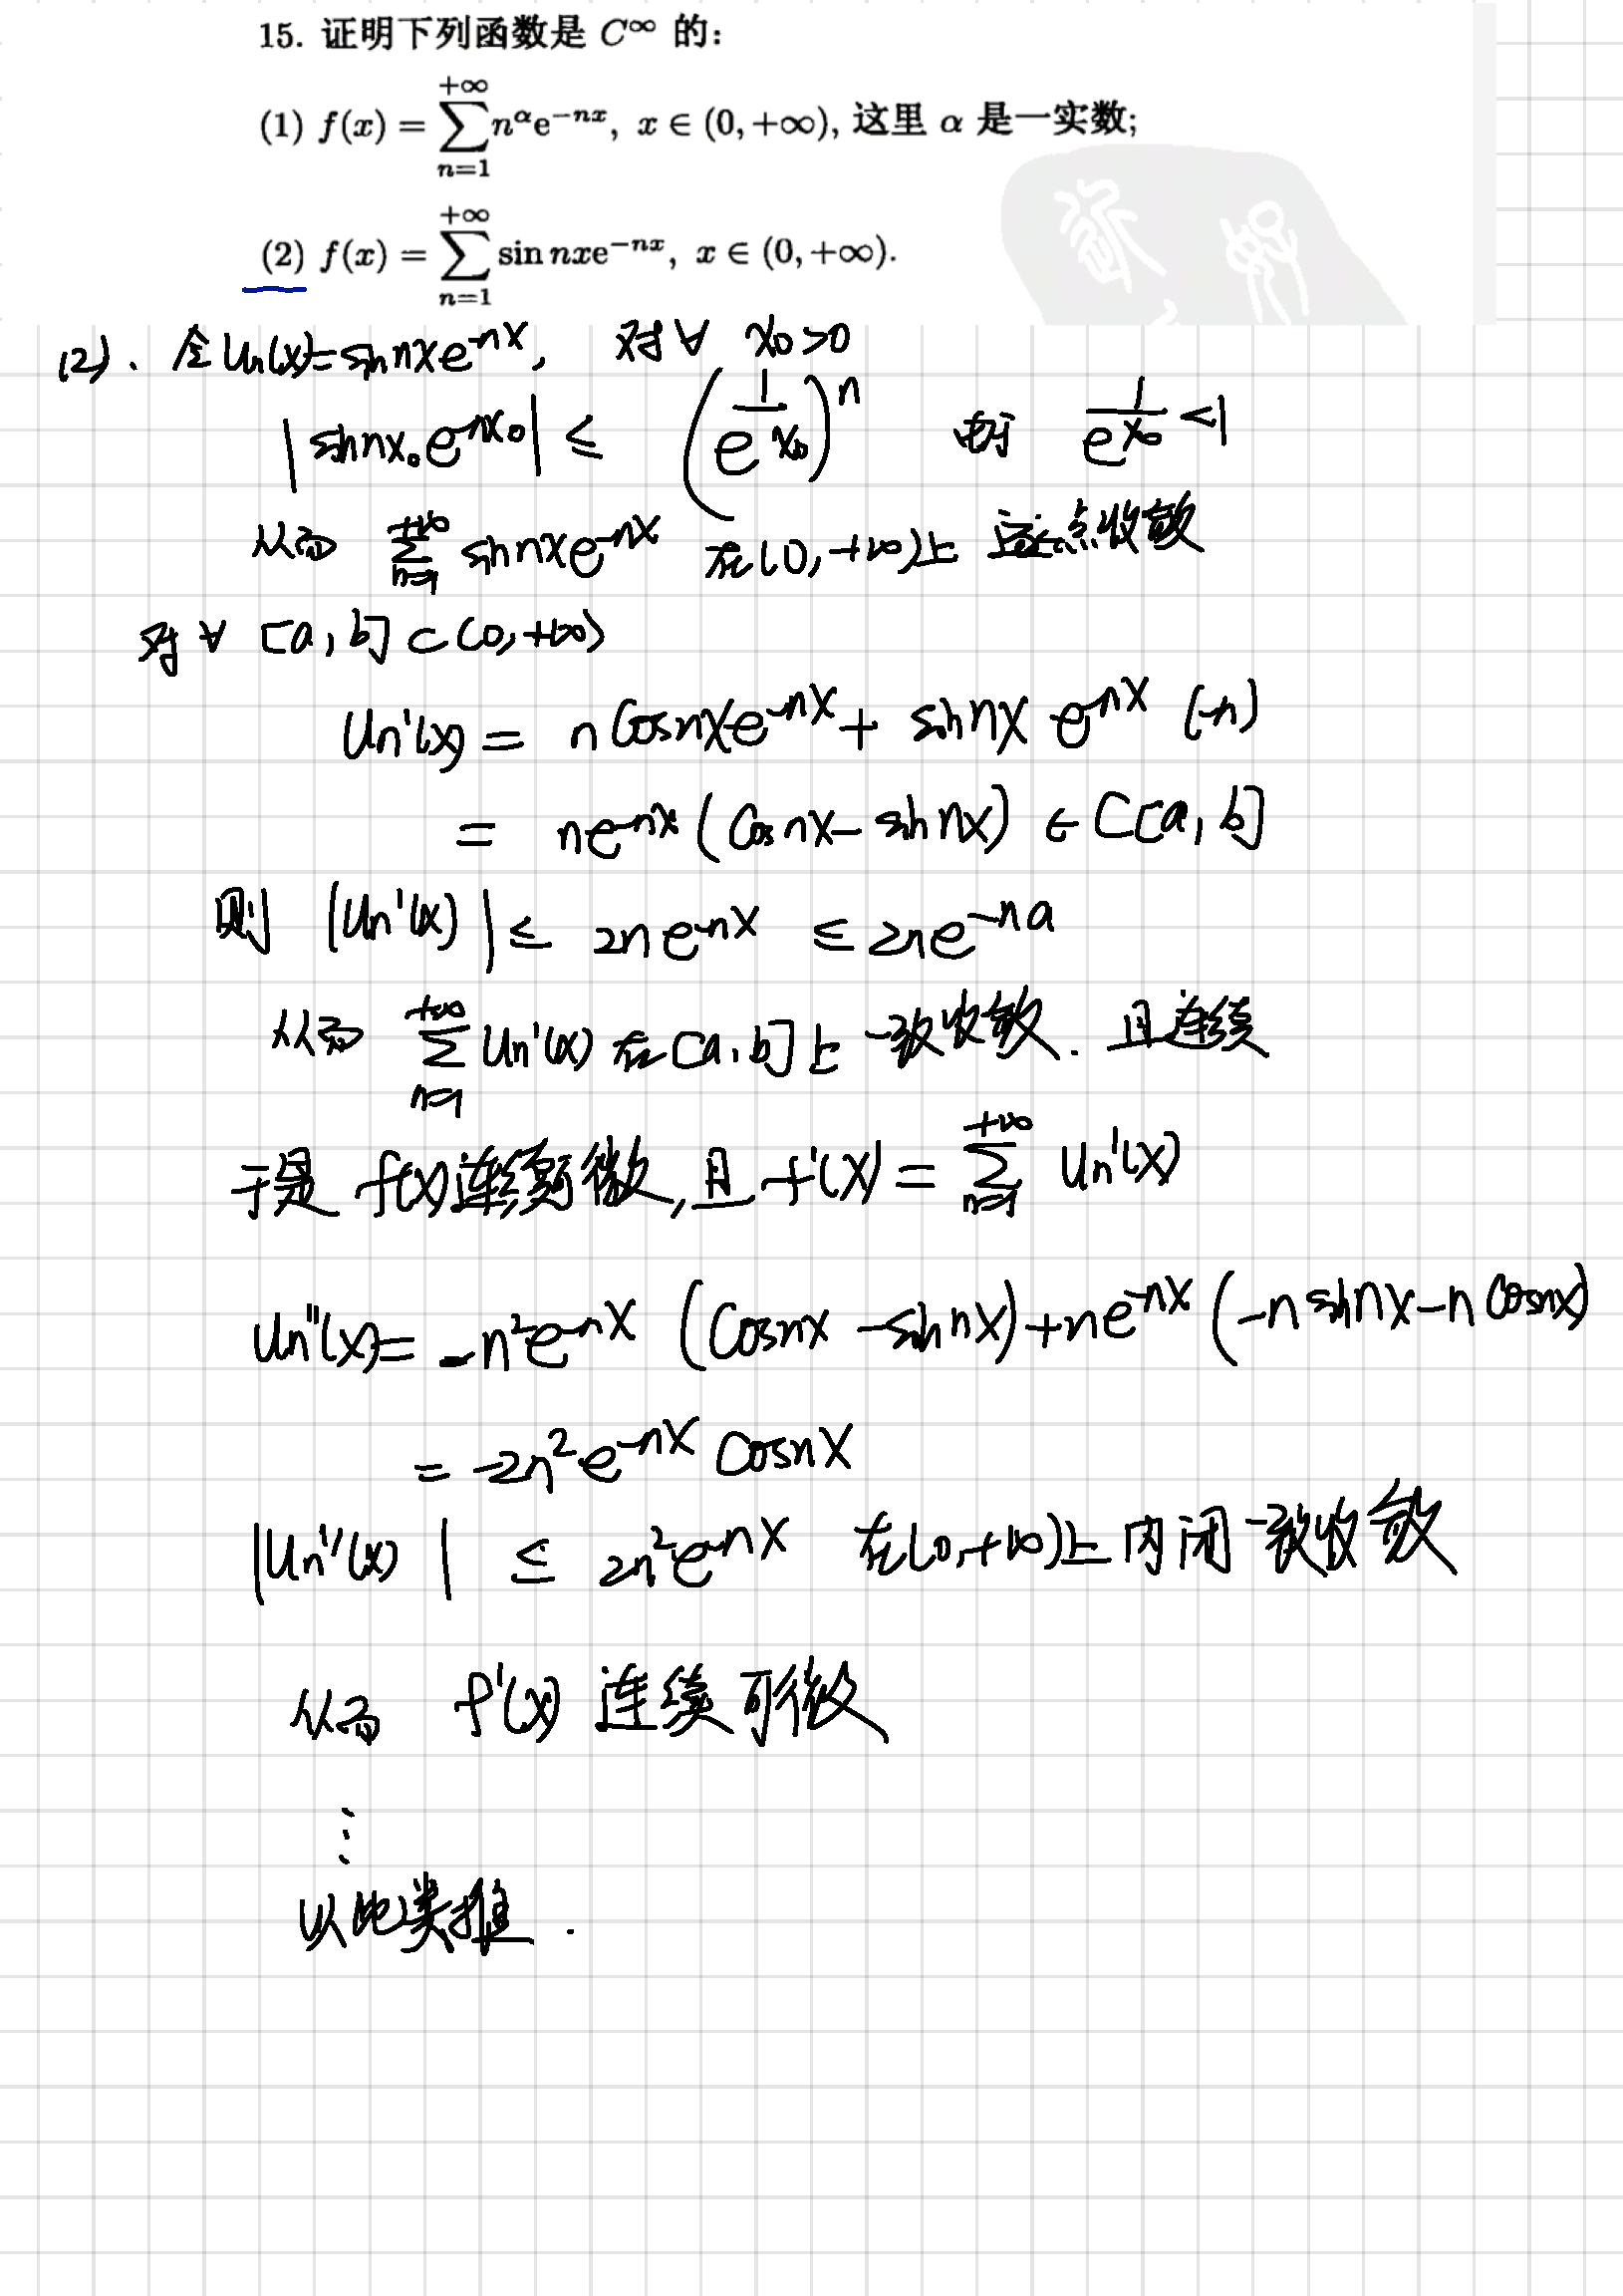 15. 证明下列函数是 C^∞ 的:
(1) f(x) = ∑_{n=1}^{+∞} n^α e^{-nx}, x ∈ (0, +∞), 这里 α 是一实数;
(2) f(x) = ∑_{n=1}^{+∞} sin nxe^{-nx}, x ∈ (0, +∞).
(2). 令 Un(x)=sin nx e^{-nx}, 对∀ x₀>0
|sin nx₀ e^{-nx₀}| ≤ (1/e^{x₀})^n 由于 1/e^{x₀} <1
从而 ∑_{n=1}^{+∞} sin nx e^{-nx} 在(0,+∞)上 逐点收敛
对∀ [a,b] ⊂ (0,+∞)
Un'(x) = n cos nx e^{-nx} + sin nx e^{-nx} (-n)
= ne^{-nx} (cos nx - sin nx) ∈ C[a,b]
则 |Un'(x)| ≤ 2n e^{-nx} ≤ 2ne^{-na}
从而 ∑_{n=1}^{+∞} Un'(x) 在 [a,b] 上 一致收敛. 且连续
于是 f(x) 连续可微, 且 f'(x) = ∑_{n=1}^{+∞} Un'(x)
Un''(x) = -n²e^{-nx} (cos nx - sin nx) + ne^{-nx} (-n sin nx - n cos nx)
= -2n² e^{-nx} cos nx
|Un''(x)| ≤ 2n²e^{-nx} 在(0,+∞)上 内闭一致收敛
从而 f'(x) 连续可微
⋮
以此类推.